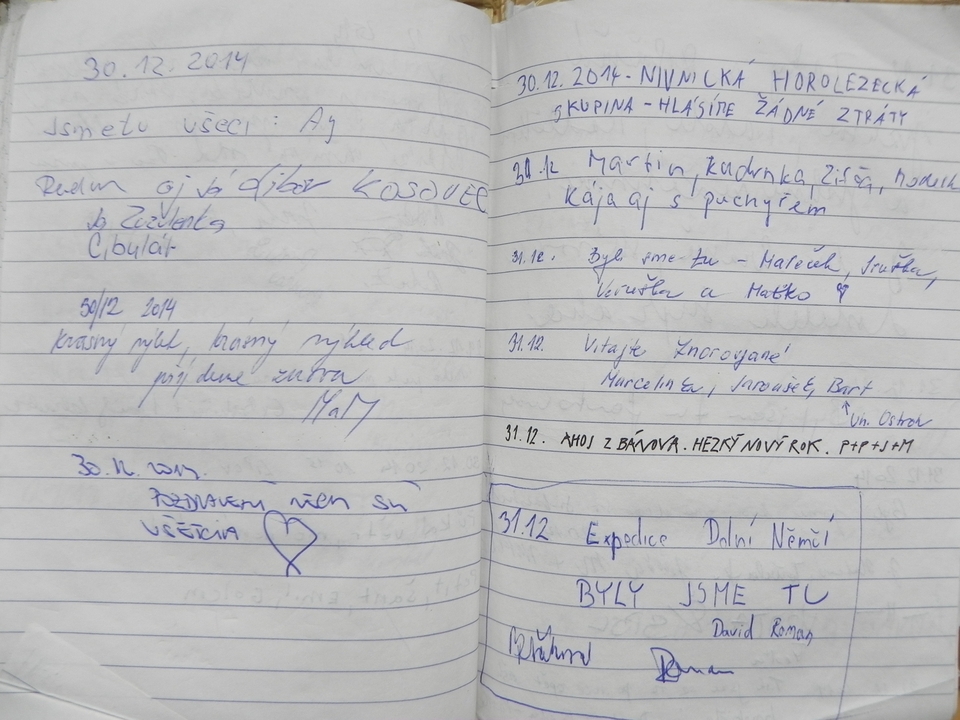 30.12.2014
Jsme tu všeci : Aj
Radim aj já Libor KOSOVEC
Cibulář
30/12 2014
krásný výlet, krásný výhled
přijdeme zítra
MaM
30.12.2014.
POZDRAVENÍ VŠEM SÚ
VŠĚTCIA
30.12.2014 - NIVNICKÁ HOROLEZECKÁ
SKUPINA - HLÁSÍME ŽÁDNÉ ZTRÁTY
31.12 Martin, Kudrnka,
Kája aj s puchýřem
31.12. Byli sme tu - Mareček,
Veruška a Maťko
31.12. Vitajte Znorovjané
Marcelinka, Jaroušek, Bart
↑ Uh. Ostroh
31.12. AHOJ Z BÁNOVA. HEZKÝ NOVÝ ROK. P+P+J+M
31.12 Expedice Dolní Němčí
BYLY JSME TU
David Roman